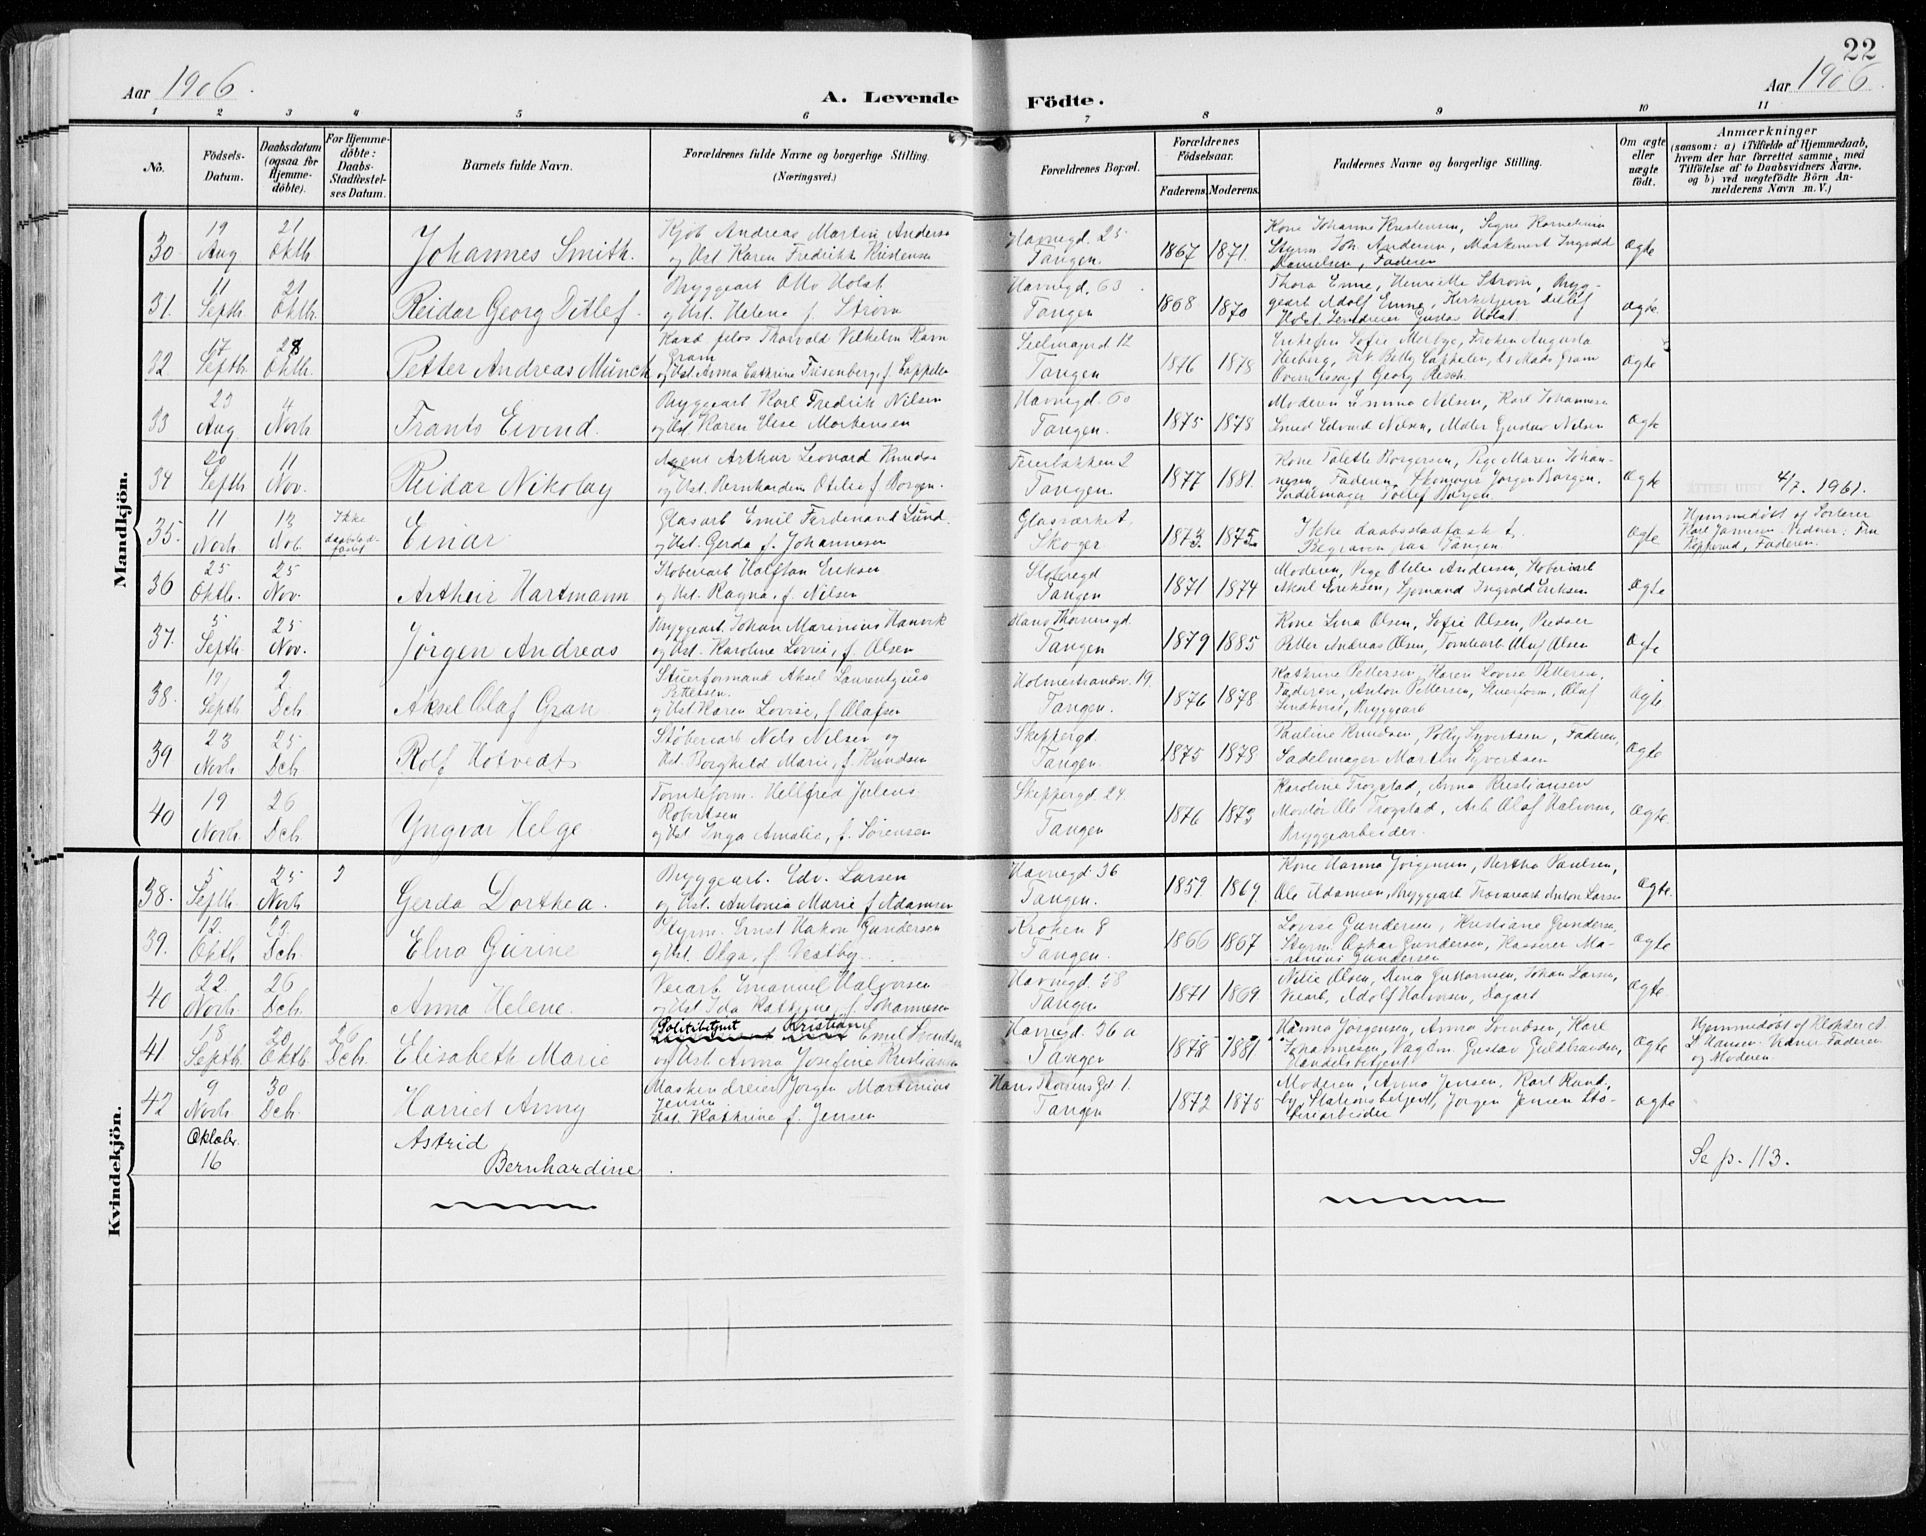 22
Aar 1906.
A. Levende
Födte.
Aar 1906.
1 2 3 4 5 6 7 8 9 10 11
No.
Födsels-
Datum.
Daabsdatum
(ogsaa for
Hjemme-
döbte).
For Hjemme-
döbte:
Daabs-
Stadfæstel-
ses Datum.
Barnets fulde Navn.
Forældrenes fulde Navne og borgerlige Stilling.
(Næringsvei.)
Forældrenes Bopæl.
Forældrenes
Födselsaar.
Faderens. Moderens.
Faddernes Navne og borgerlige Stilling.
Om ægte
eller
uægte
födt.
Anmærkninger
(saasom: a) i Tilfælde af Hjemmedaab,
hvem der har forrettet samme, med
Tilföielse af to Daabsvidners Navne,
og b) ved uægtefödte Börn An-
melderens Navn m. V.)
Mandkjön.
30 19 Aug 21 Oktb. Johannes Smith.
Kjøb Andreas Martin Anderse
og Ust Karen Fredrikke Kristensen
Havnegd. 25
Tangen.
1867 1871.
Kone Johanne Kristensen, Signe Kornelius
Styrm Joh. Andersen, Maskenist Ingvald
Danielsen, Faderen
Ægte
31. 11 Septb. 21 Oktb. Reidar Georg Ditlef.
Bryggearb Otto Holst
og Ust. Helena f. Strøm
Havnegd. 63
Tangen
1868 1870
Thora Enne, Henriette Strøm, Bryg-
gearb Adolf Enne, Kirketjener Ditlef
Holst, Gustav Holst
ægte.
32 17 Septb. 28 Oktb. Petter Andreas Münch
Kand filos Thorvald Vilhelm Ravn
Gram
og Ust. Anna Cathrine Friesenberg, f. Cappelen
Seilmagerd 12
Tangen
1876 1878
Sofie Melbye, Frøken Augusta
Heiberg, Frk Betty Cappelen, Mads Gram
Overretssagf Georg Resch.
Ægte
33 23 Aug 4 Novb Frants Eivind.
Bryggearb Karl Fredrik Nilsen
og Ust. Karen Else Mortensen
Havnegd. 60
Tangen.
1875 1878
Moderen Emma Nilsen, Karl Johannesen
Smed Edvard Nilsen, Maler Gustav Nilsen
Ægte
34 20 Septb. 11 Nov. Reidar Nikolay
Agent Arthur Leonard Knudse
og Ust. Bernhardine Otilie f. Borgen.
Feierbakken 2
Tangen.
1877 1881
Kone Tolette Borgersen, Pige Maren Johan-
nesen, Faderen, Skomager Jørgen Borgen,
Sadelmager Tollef Borgen
Ægte
4/7. 1961.
35. 11 Novb 13 Nob. Ikke
daabstad-
fæstet
Einar
Glasarb Emil Ferdinand Lund.
og Ust. Gerda f. Johannesen
Glasværket,
Skoger
1873. 1875.
Ikke daabsstadfæstet,
Begraven paa Tangen
Ægte.
Hjemmedøbt af Sorterer
Karl Jansen Vidner: Fru
Kopperud, Faderen.
36 25 Oktb. 25 Nov. Artheir Hartmann
Støberiarb Halftan Eriksen
og Ust. Ragna, f. Nilsen
Støberigd
Tangen
1871 1874
Moderen, Pige Otilie Andersen, Støberiarb
Aksel Eriksen, Sjømand Ingvald Eriksen
Ægte
37. 5 Septb. 25 Nov. Jörgen Andreas
Bryggearb. Johan Marinius Hanvik
og Ust. Karoline Lovise, f. Olsen
Hans Thornesgd
Tangen
1879 1885
Kone Lina Olsen, Sofie Olsen, Presser
Petter Andreas Olsen, Tomtearb Olaf Olsen
Ægte
38. Septb 2. Dcb. Aksel Olaf Gran
Stuerformand Aksel Laurentzius
Pettersen.
og Ust Karen Lovise, f Olafsen
Holmestrandsv. 19.
Tangen.
1876 1878
Kathrine Pettersen, Karen Lovise Pettersen,
Faderen, Anton Pettersen, Stuerform, Olaf
Lindkvist, Bryggearb
ægte
39 23 Novb. 25 Dcb. Rolf Hotvedt
Støberiarb Nils Nilsen og
Ust. Borghild Marie, f Knudsen
Skeppergd
Tangen.
1875 1878
Pauline Knudsen, Polly Syvertsen, Faderen,
Sadelmager Martin Syvertsen
Ægte
40 19 Novb. 26 Dcb. Yngvar Helge
Tomteform. Hellfred Julius
Robertsen
og Ust Inga Amalie, f. Sørensen
Skeppergd. 24
Tangen
1876 1873
Karoline Trogstad, Anna Kristiansen
Montør Ole Trogstad, Arb Olaf Halvorsen,
Bryggearbeider.
Ægte.
Kvindekjön.
38. 5 Septb. 25 Novb Gerda Dorthea.
Bryggearb. Edv. Larsen
og Ust. Antonia Marie f Adamsen
Havnegd. 36
Tangen.
1859 1869.
Kone Hanna Jørgensen, Bertha Paulsen,
Ole Adamsen, Bryggearb Anton Larsen
Ægte.
39. 12. Oktb 23 Dcb. Elna Gurine
Styrm. Ernst Hakon Gundersen
og Ust. Olga, f. Vestby
Kroken 8
Tangen.
1866 1867
Lovise Gundersen, Kristiane Gundersen,
Styrm. Oskar Gundersen, Kasserer Ma-
renius Gundersen
Ægte
40 22 Novb. 26 Dcb. Anna Helene.
Veiarb Emanuel Halvorsen
og Ust Ida Kathrine, f. Johannesen
Havnegd. 58
Tangen
1871 1869.
Nilie Olsen, Anna Guttormsen, Johan Larsen,
Veiarb, Adolf Halvorsen, Dagarb
Ægte.
41 18 Septb. 20 Oktb. 26 Dcb. Elisabeth Marie
Politibetjent Kristian Emil Svendsen
og Ust. Anna Josefine Kristiansen
Havnegd. 36 a
Tangen
1878 1881
Hanna Jørgensen, Anna Svendsen, Karl
Johannesen, Gustav Guldbrandsen,
Handelsbetjent
Ægte
Hjemmedøbt af Klokker A.
L. Hansen. Vidner Faderen
og Moderen.
42 9 Novb. 30 Dcb. Harriet Anny
Maskendreier Jørgen Martinius
Jensen
Ust. Kathrine f. Jensen
Hans Tordsens Gd. 1.
Tangen
1872 1875
Moderen, Anna Jensen, Karl Rund-
by, Stationsbetjent, Jørgen Jensen Stø-
beriarbeider
Ægte
Oktober
16
Astrid
Bernhardine
Se p. 113.